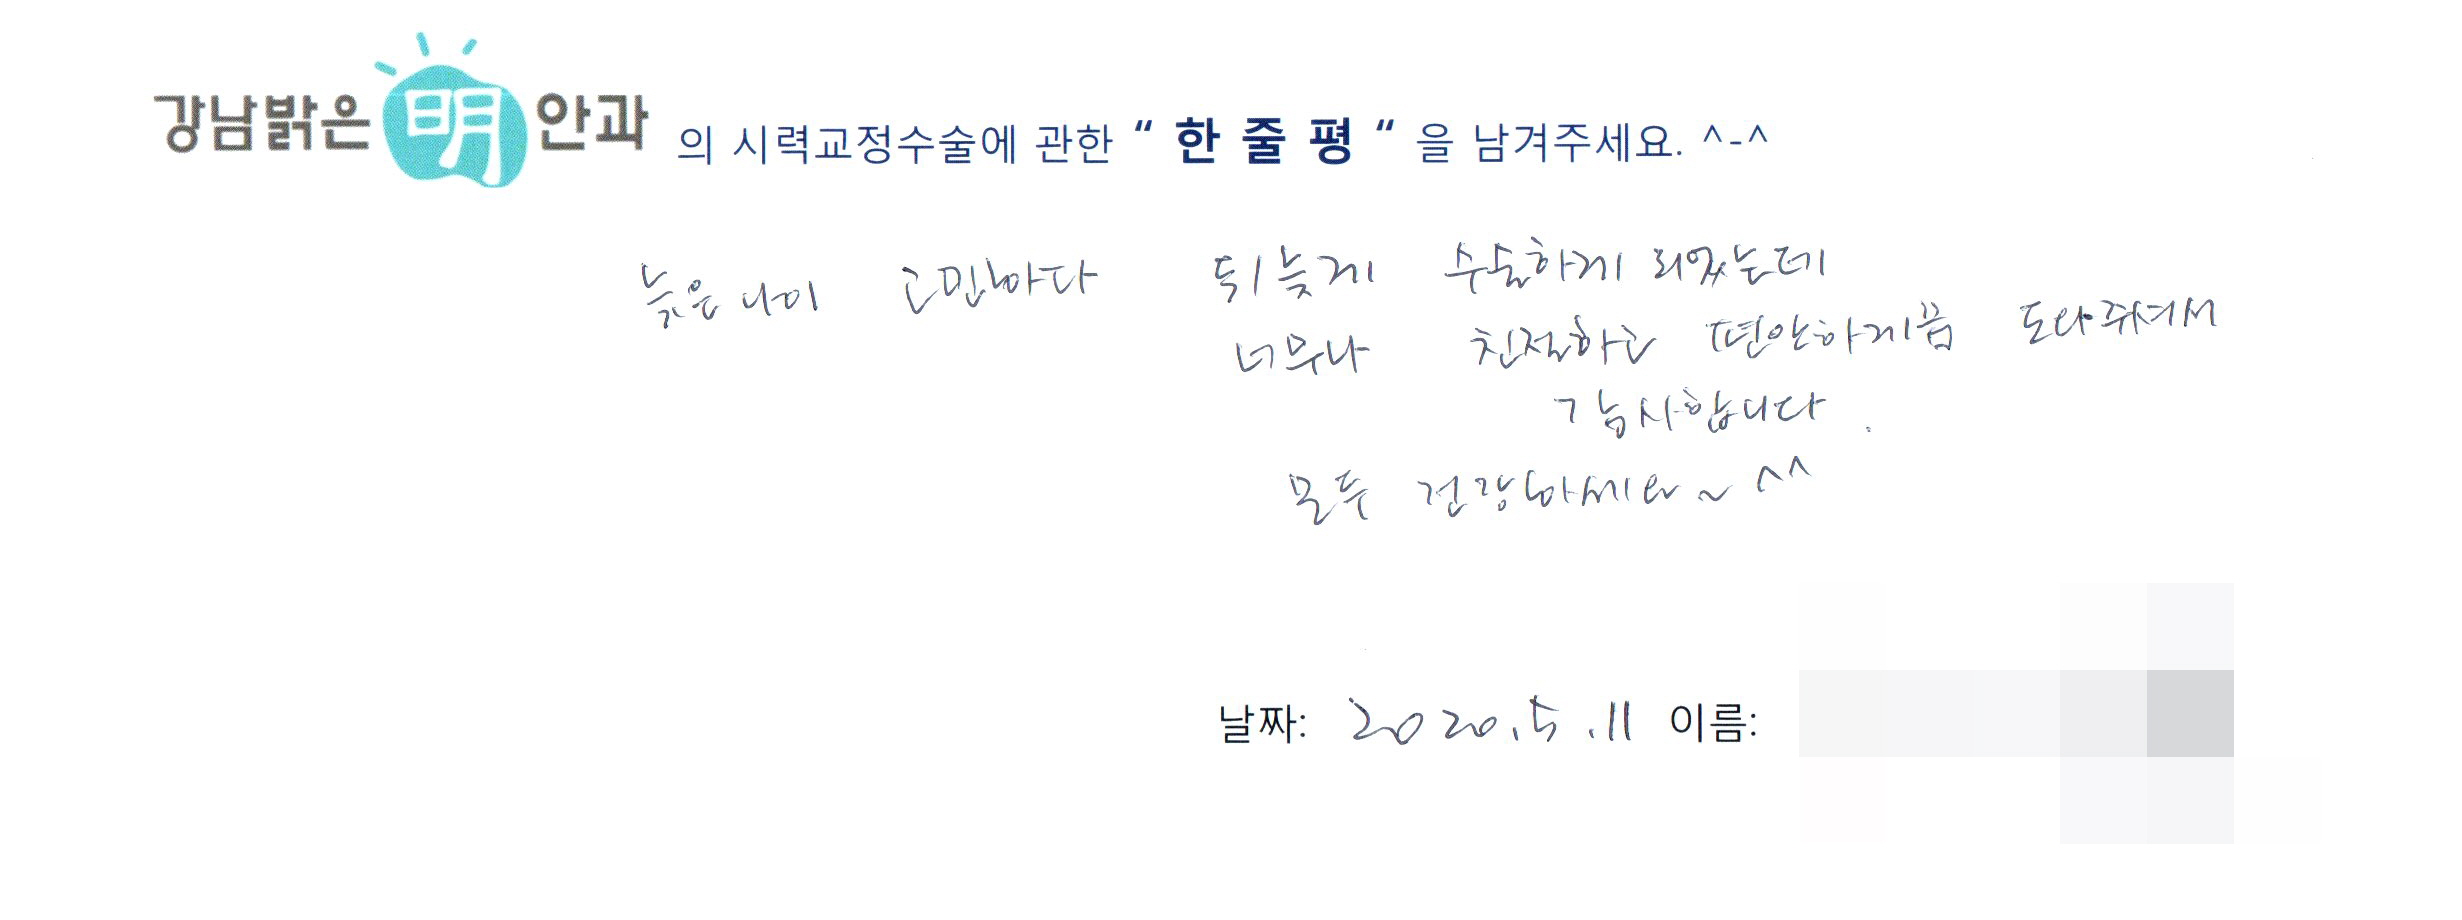 강남밝은 明 안과 의 시력교정수술에 관한 “ 한 줄 평 “ 을 남겨주세요. ^-^
늦은 나이 고민하다 뒤늦게 수술하게 되었는데
너무나 친절하고 편안하게끔 도와주셔서
감사합니다.
모두 건강하세요~ ^^
날짜: 2020.5.11 이름: